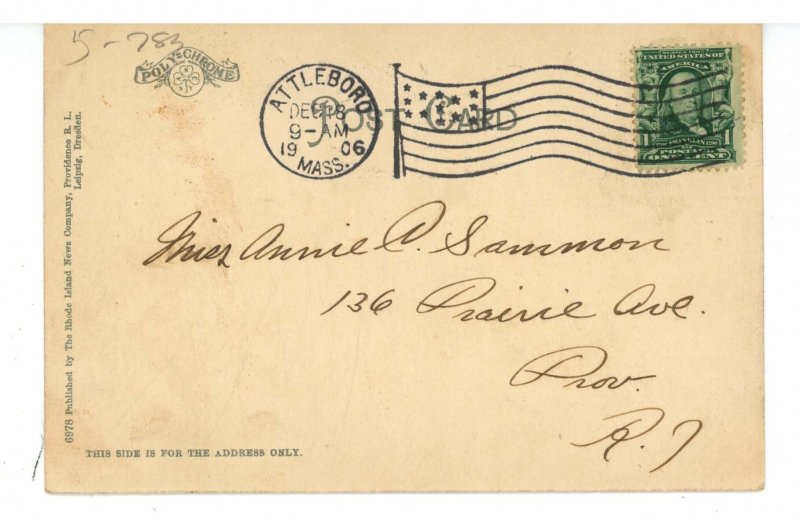 5-783
POLY-CHROME
ATTLEBORO
DEC 18
9-AM
1906
MASS.
POST CARD
SERIES 1902
UNITED STATES OF
AMERICA
FRANKLIN
POSTAGE
1 ONE CENT 1
Miss Annie C. Sammon
136 Prairie Ave.
Prov.
R.I
6978 Published by The Rhode Island News Company, Providence R. I.,
Leipzig, Dresden.
THIS SIDE IS FOR THE ADDRESS ONLY.